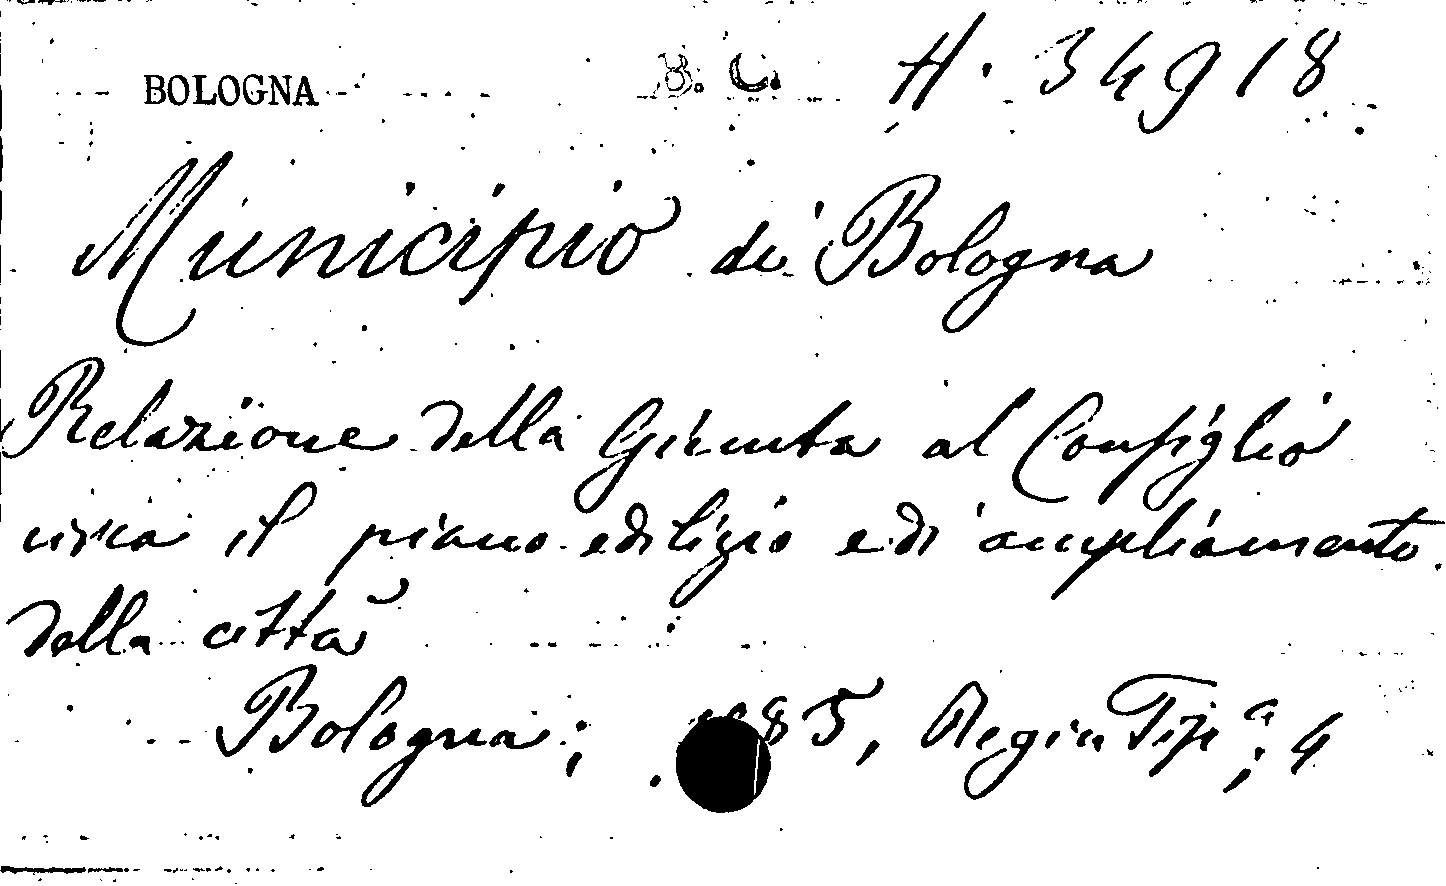 BOLOGNA B. C. H. 34918
Municipio di Bologna
Relazione della Giunta al Consiglio
circa il piano edilizio e di ampliamento
della città
Bologna; 1885, Regia Tip.a, 4